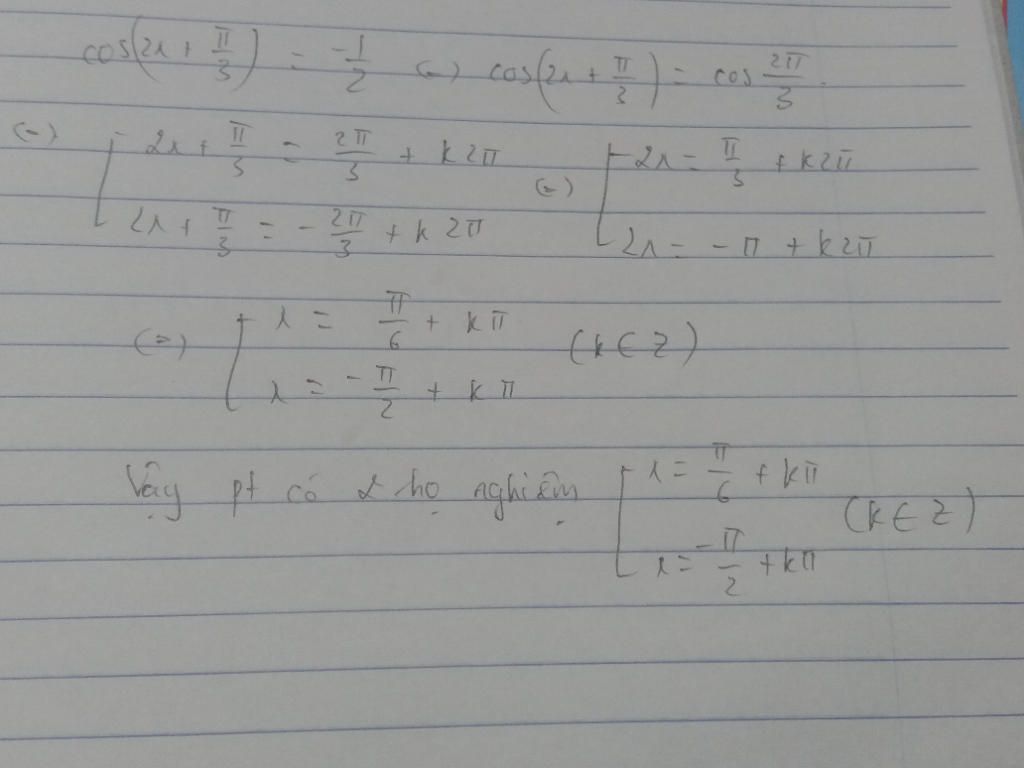 cos(2x + π/3) = -1/2 (=) cos(2x + π/3) = cos 2π/3.
(=) [ 2x + π/3 = 2π/3 + k2π (=) [ 2x = π/3 + k2π
2x + π/3 = -2π/3 + k2π 2x = -π + k2π
(=) [ x = π/6 + kπ (k ∈ Z)
x = -π/2 + kπ
Vậy pt có 2 họ nghiệm [ x = π/6 + kπ (k ∈ Z)
x = -π/2 + kπ